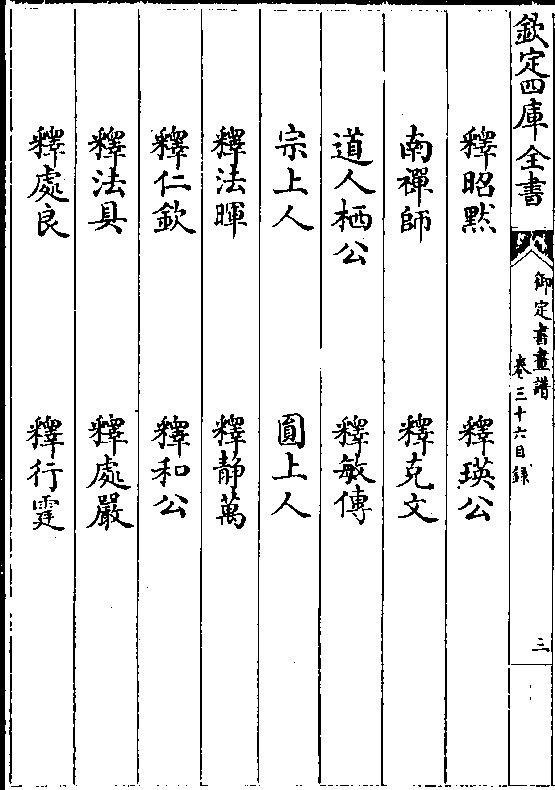 欽定四庫全書
御定書畫譜
卷三十六目錄
三
釋昭黙 釋瑛公
南禪師 釋克文
道人栖公 釋敏傳
宗上人 圓上人
釋法暉 釋静萬
釋仁欽 釋和公
釋法具 釋處嚴
釋處良 釋行霆